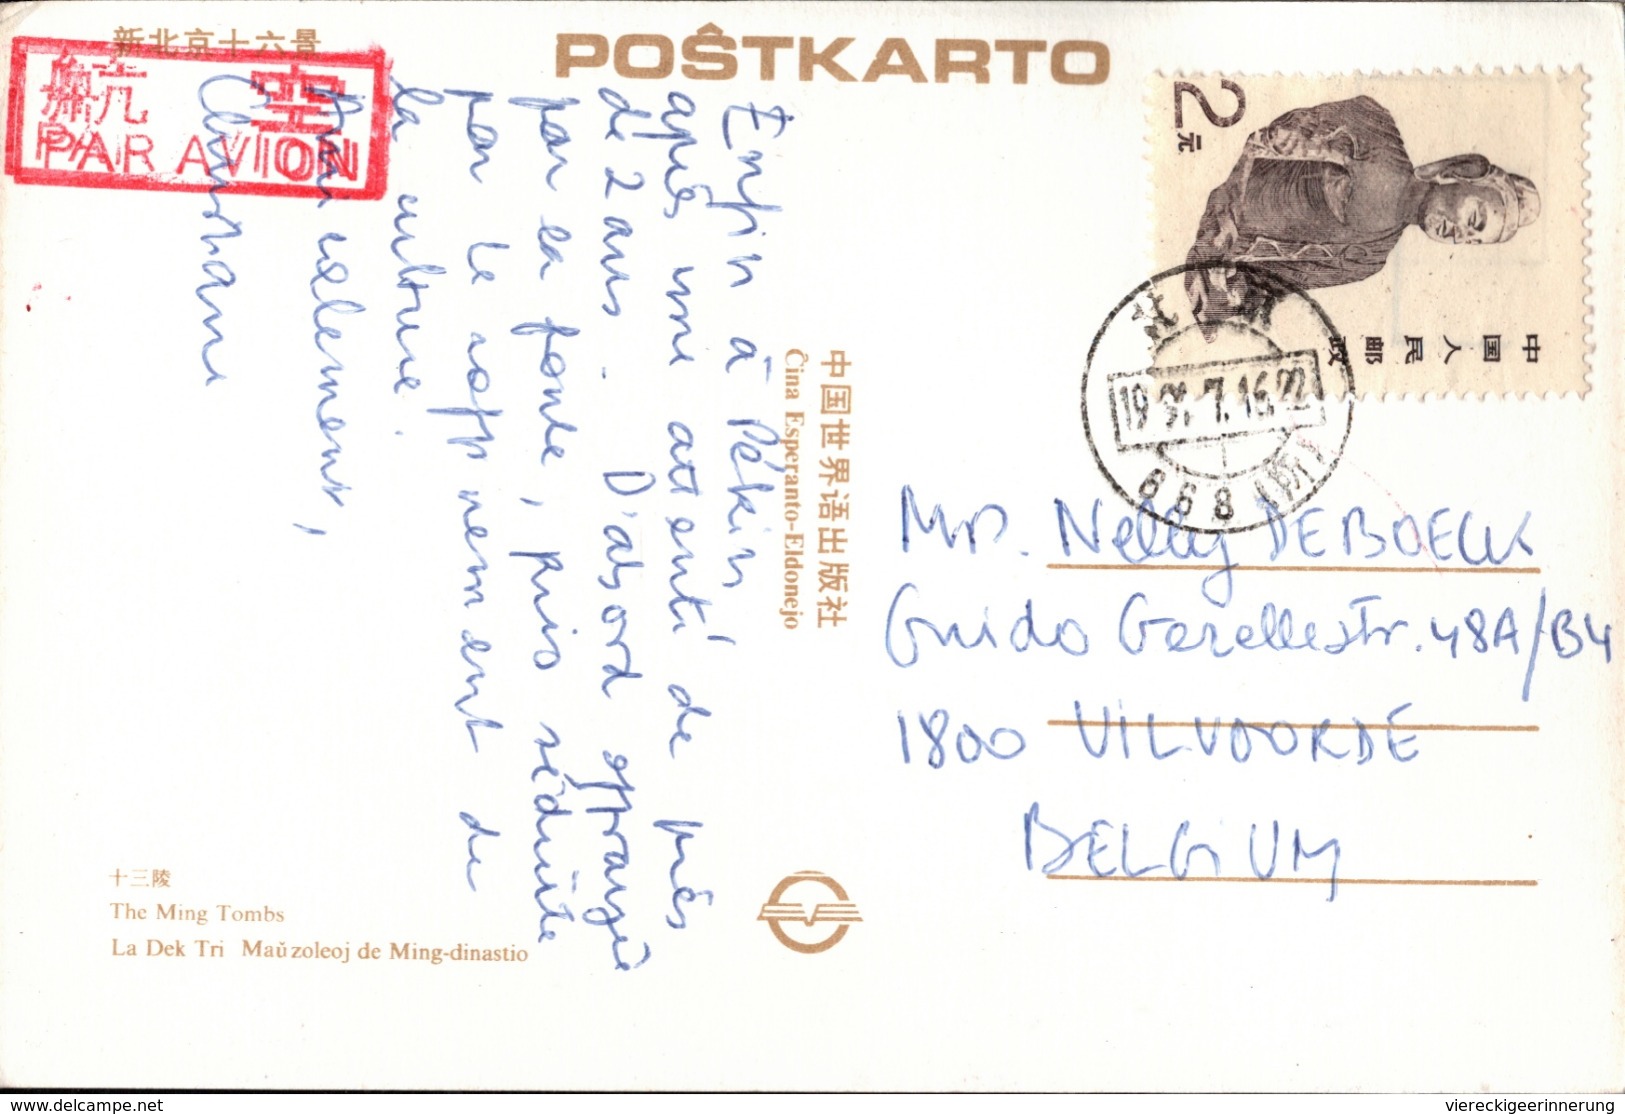 新北京十六景
POŜTKARTO
航空
PAR AVION
2元
中国人民邮政
北京
7.16.22
668
中国世界语出版社
Ĉina Esperanto-Eldonejo
Enfin à Pékin
après une attente de près
de 2 ans. D'abord effrayée
par la foule, puis séduite
par le raffinement de
la culture.
Amicalement,
Mr. Nelly DEBOECK
Guido Gezellestr. 48A/B4
1800 VILVOORDE
BELGIUM
十三陵
The Ming Tombs
La Dek Tri Maŭzoleoj de Ming-dinastio
www.delcampe.net
viereckigeerinnerung